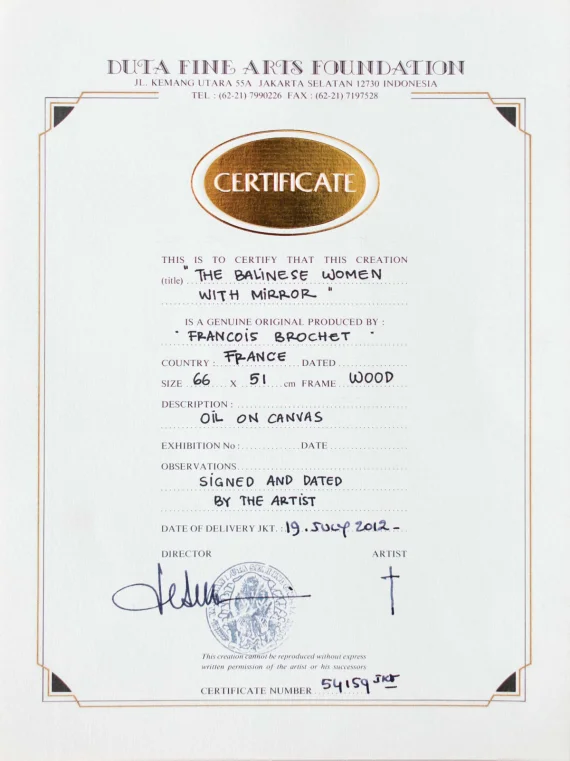 DUTA FINE ARTS FOUNDATION
JL. KEMANG UTARA 55A JAKARTA SELATAN 12730 INDONESIA
TEL : (62-21) 7990226 FAX : (62-21) 7197528
CERTIFICATE
THIS IS TO CERTIFY THAT THIS CREATION
(title) "THE BALINESE WOMEN
WITH MIRROR"
IS A GENUINE ORIGINAL PRODUCED BY :
FRANCOIS BROCHET
COUNTRY : FRANCE DATED
SIZE 66 X 51 cm FRAME WOOD
DESCRIPTION :
OIL ON CANVAS
EXHIBITION No : DATE
OBSERVATIONS
SIGNED AND DATED
BY THE ARTIST
DATE OF DELIVERY JKT. : 19. JULY 2012 -
DIRECTOR ARTIST
This creation cannot be reproduced without express
written permission of the artist or his successors
CERTIFICATE NUMBER 54159 JKT